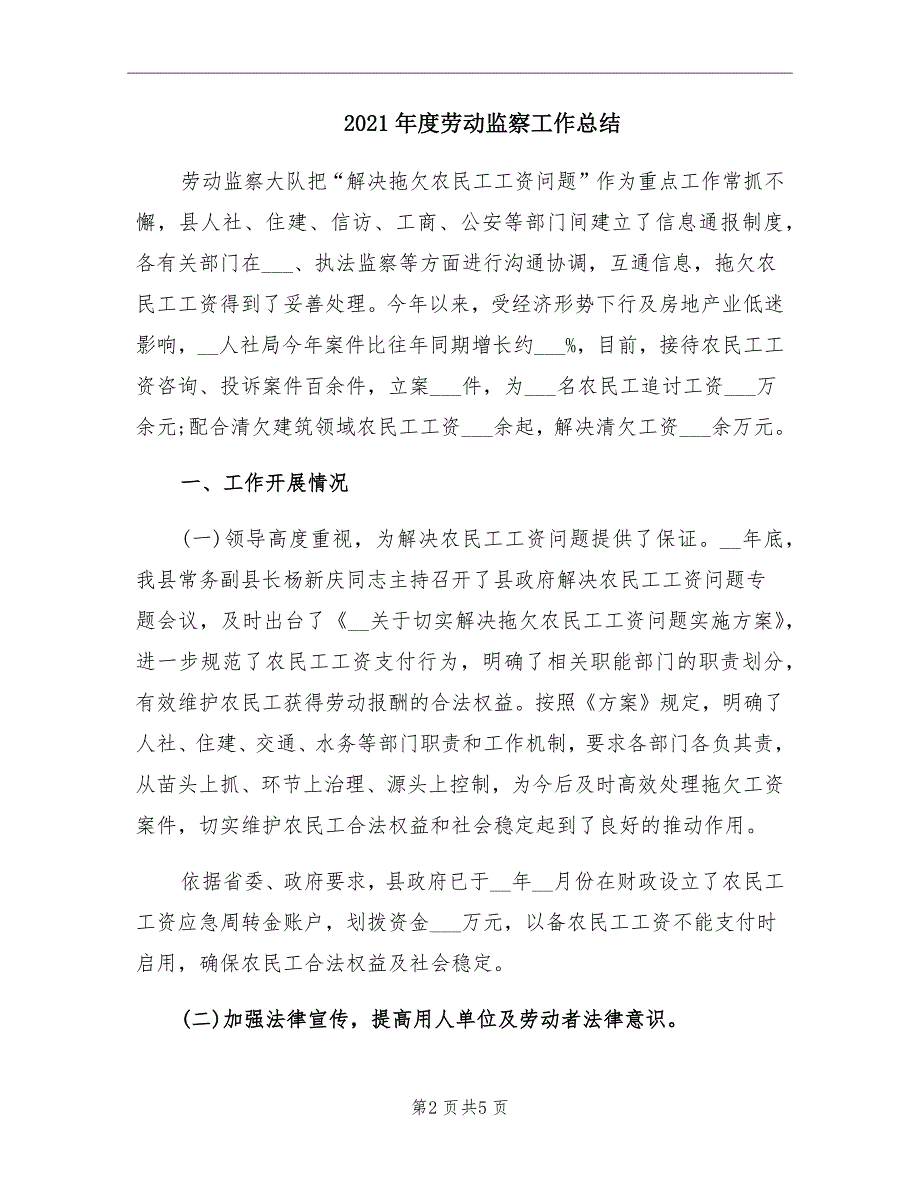 2021 年度劳动监察工作总结
劳动监察大队把“解决拖欠农民工工资问题”作为重点工作常抓不
懈，县人社、住建、信访、工商、公安等部门间建立了信息通报制度，
各有关部门在___、执法监察等方面进行沟通协调，互通信息，拖欠农
民工工资得到了妥善处理。今年以来，受经济形势下行及房地产业低迷
影响，__人社局今年案件比往年同期增长约___%，目前，接待农民工工
资咨询、投诉案件百余件，立案___件，为___名农民工追讨工资___万
余元;配合清欠建筑领域农民工工资___余起，解决清欠工资___余万元。
一、工作开展情况
(一)领导高度重视，为解决农民工工资问题提供了保证。__年底，
我县常务副县长杨新庆同志主持召开了县政府解决农民工工资问题专
题会议，及时出台了《__关于切实解决拖欠农民工工资问题实施方案》，
进一步规范了农民工工资支付行为，明确了相关职能部门的职责划分，
有效维护农民工获得劳动报酬的合法权益。按照《方案》规定，明确了
人社、住建、交通、水务等部门职责和工作机制，要求各部门各负其责，
从苗头上抓、环节上治理、源头上控制，为今后及时高效处理拖欠工资
案件，切实维护农民工合法权益和社会稳定起到了良好的推动作用。
依据省委、政府要求，县政府已于__年__月份在财政设立了农民工
工资应急周转金账户，划拨资金___万元，以备农民工工资不能支付时
启用，确保农民工合法权益及社会稳定。
(二)加强法律宣传，提高用人单位及劳动者法律意识。
第2 页 共5 页